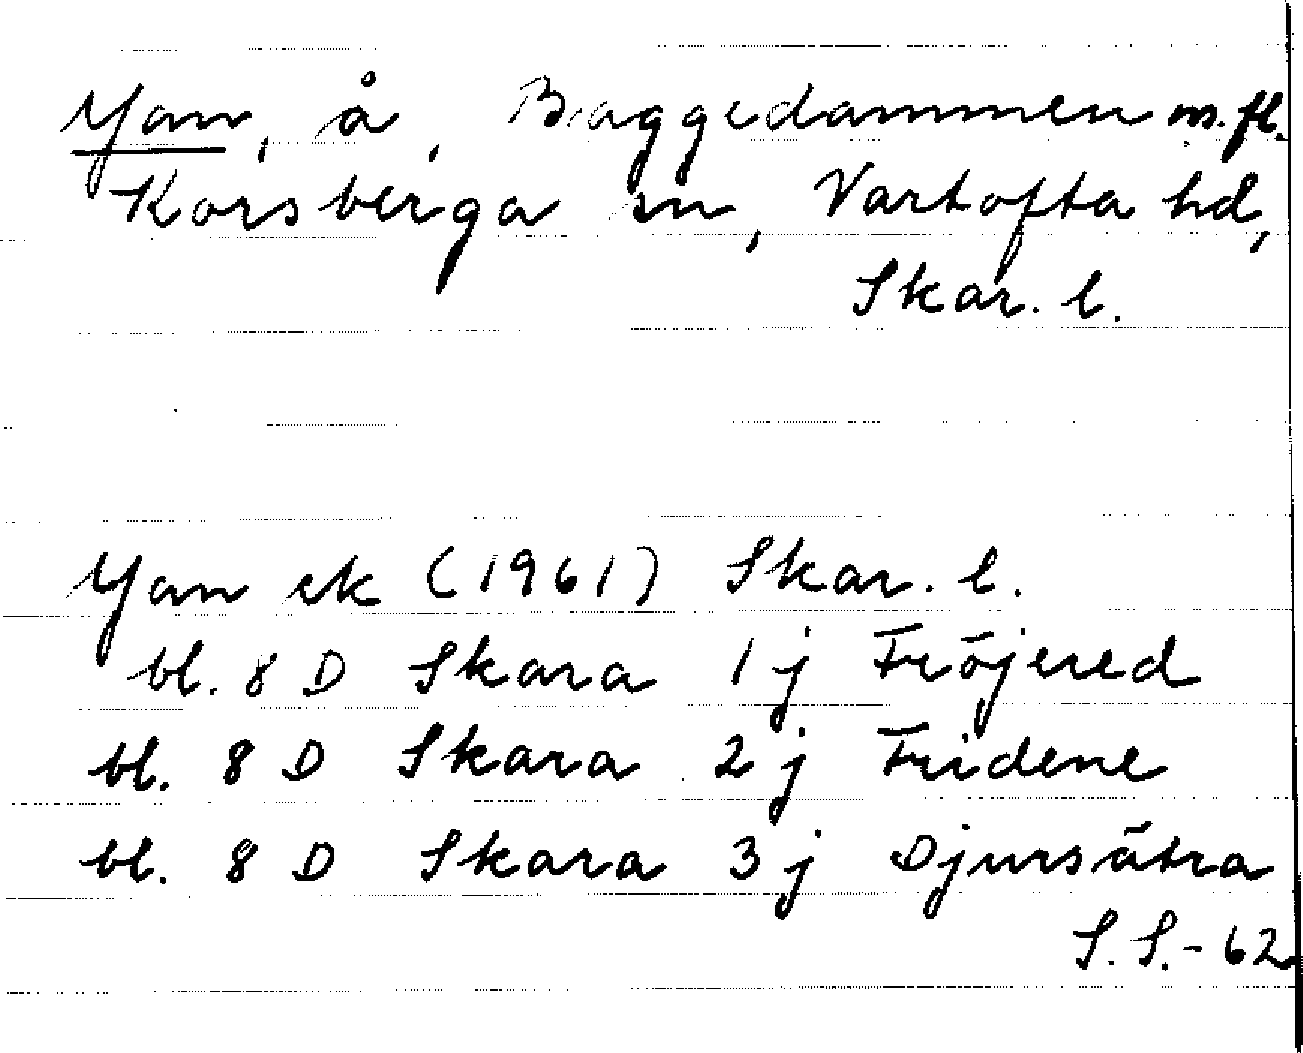 Yan, å, Baggedammen m.fl.
Korsberga sn, Vartofta hd,
Skar. l.
Yan ek (1961) Skar. l.
bl. 8 D Skara 1 j Fröjered
bl. 8 D Skara 2 j Fridene
bl. 8 D Skara 3 j Djursätra
S. S. - 62